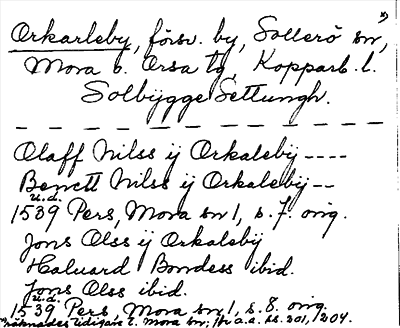 *)
Orkarleby, försv. by, Sollerö sn,
Mora o. Orsa tg, Kopparb. l.
Solbygge Settungh.
Olaff Nilss ij Orkaleby ----
Benctt Nilss ij Orkaleby --
u.d.
1539 Pers, Mora sn 1, s. 7. orig.
Jons Olss ij Orkaleby
Haluard Bondess ibid.
Jons Olss ibid.
u.d.
1539 Pers, Mora sn 1, s. 8. orig.
*) räknades tidigare t. Mora sn; a.a. ss. 201, 204.